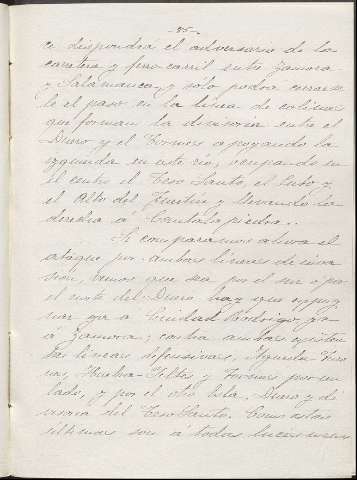 -85-
ce dispondrá el adversario de la
carretera y ferro carril entre Zamora
y Salamanca, y sólo podrá cerrarse
le el paso en la línea de colinas
que forman la divisoria entre el
Duero y el Tormes apoyando la
izquierda en este río, ocupando en
el centro el Teso Santo, el Soto y
el Alto del y llevando la
derecha á Cantalapiedra.
Si comparamos ahora el
ataque por ambas líneas de inva
sión, vemos que sea por el sur o por
el norte del Duero hay que
ya á Ciudad Rodrigo ya
á Zamora; contra ambas existen
las líneas defensivas, Agueda
Huebra-Yeltes y Tormes por un
lado, y por el otro Esla, Duero y di
visoria del Teso Santo. Como estas
últimas son á todas luces